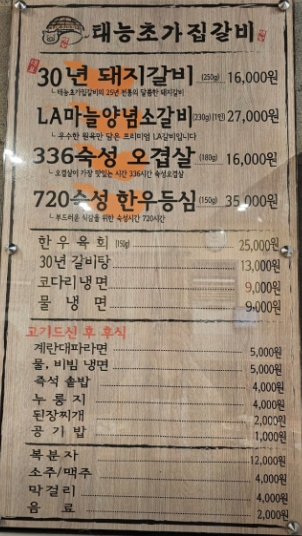 태능초가집갈비
30년 돼지갈비 (250g) 16,000원
└ 태능초가집갈비의 25년 전통의 달콤한 돼지갈비
LA마늘양념소갈비 (230g)(1인) 27,000원
└ 우수한 원육만 담은 프리미엄 LA갈비입니다
336숙성 오겹살 (180g) 16,000원
└ 오겹살이 가장 맛있는 시간 336시간 숙성오겹살
720숙성 한우등심 (150g) 35,000원
└ 부드러운 식감을 위한 숙성시간 720시간
한우육회 (150g) 25,000원
30년 갈비탕 13,000원
코다리냉면 9,000원
물냉면 9,000원
고기드신 후 후식
계란대파라면 5,000원
물, 비빔 냉면 5,000원
즉석 솥밥 4,000원
누룽지 4,000원
된장찌개 2,000원
공기밥 1,000원
복분자 12,000원
소주/맥주 4,000원
막걸리 4,000원
음료 2,000원